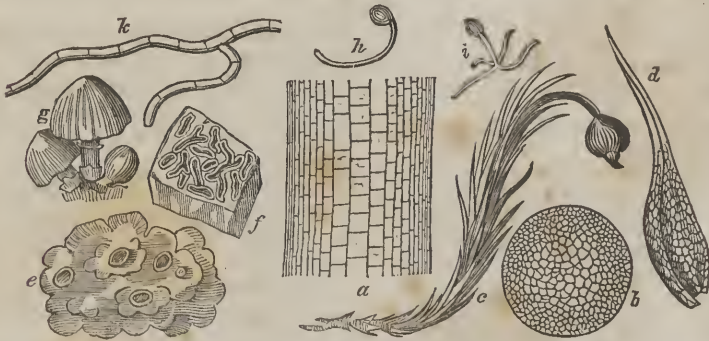 k
h
i
d
g
f
e
a
c
b